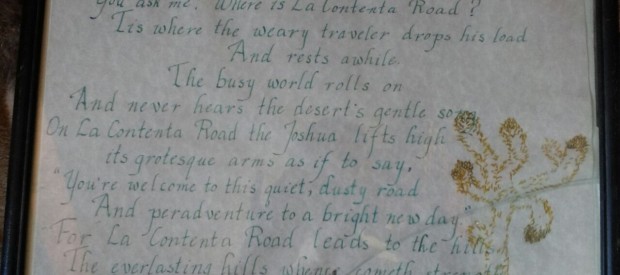 You ask me, Where is La Contenta Road?
Tis where the weary traveler drops his load
And rests awhile.
The busy world rolls on
And never hears the desert's gentle song
On La Contenta Road the Joshua lifts high
its grotesque arms as if to say,
"You're welcome to this quiet, dusty road
And peradventure to a bright new day"
For La Contenta Road leads to the hills
The everlasting hills whence cometh strength